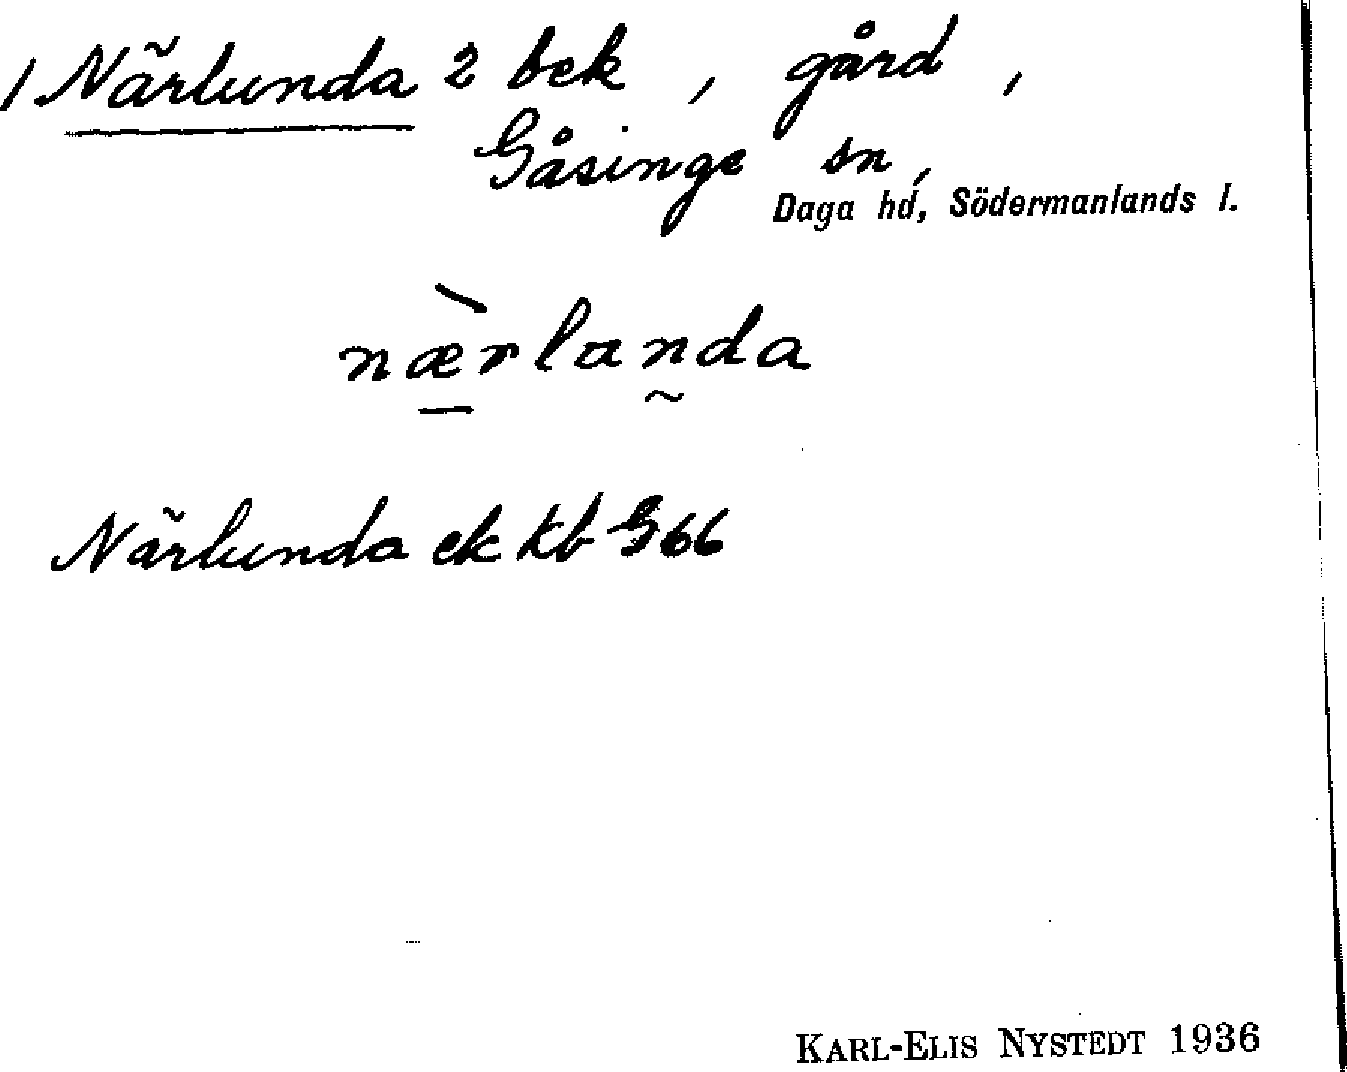 / Närlunda 2 bek , gård ,
Gåsinge sn,
Daga hd, Södermanlands l.
nær̀landa
Närlunda ek kb G66
KARL-ELIS NYSTEDT 1936